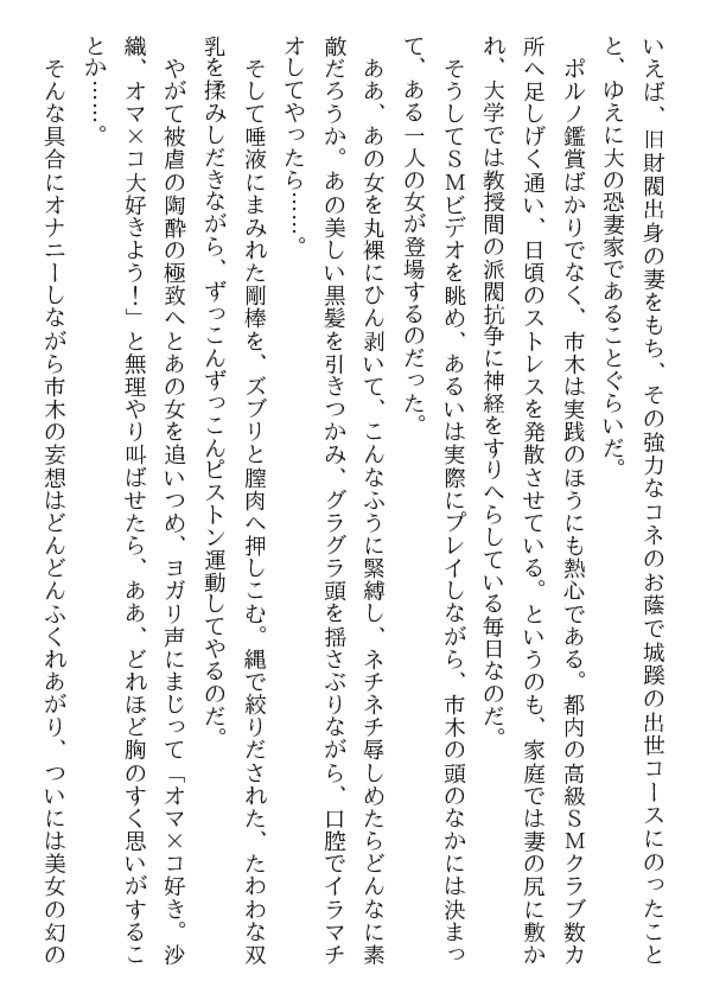 いえば、旧財閥出身の妻をもち、その強力なコネのお蔭で城蹊の出世コースにのったこと
と、ゆえに大の恐妻家であることぐらいだ。
　ポルノ鑑賞ばかりでなく、市木は実践のほうにも熱心である。都内の高級ＳＭクラブ数カ
所へ足しげく通い、日頃のストレスを発散させている。というのも、家庭では妻の尻に敷か
れ、大学では教授間の派閥抗争に神経をすりへらしている毎日なのだ。
　そうしてＳＭビデオを眺め、あるいは実際にプレイしながら、市木の頭のなかには決まっ
て、ある一人の女が登場するのだった。
　ああ、あの女を丸裸にひん剥いて、こんなふうに緊縛し、ネチネチ辱しめたらどんなに素
敵だろうか。あの美しい黒髪を引きつかみ、グラグラ頭を揺さぶりながら、口腔でイラマチ
オしてやったら……。
　そして唾液にまみれた剛棒を、ズブリと膣肉へ押しこむ。縄で絞りだされた、たわわな双
乳を揉みしだきながら、ずっこんずっこんピストン運動してやるのだ。
　やがて被虐の陶酔の極致へとあの女を追いつめ、ヨガリ声にまじって「オマ×コ好き。沙
織、オマ×コ大好きよう！」と無理やり叫ばせたら、ああ、どれほど胸のすく思いがするこ
とか……。
　そんな具合にオナニーしながら市木の妄想はどんどんふくれあがり、ついには美女の幻の